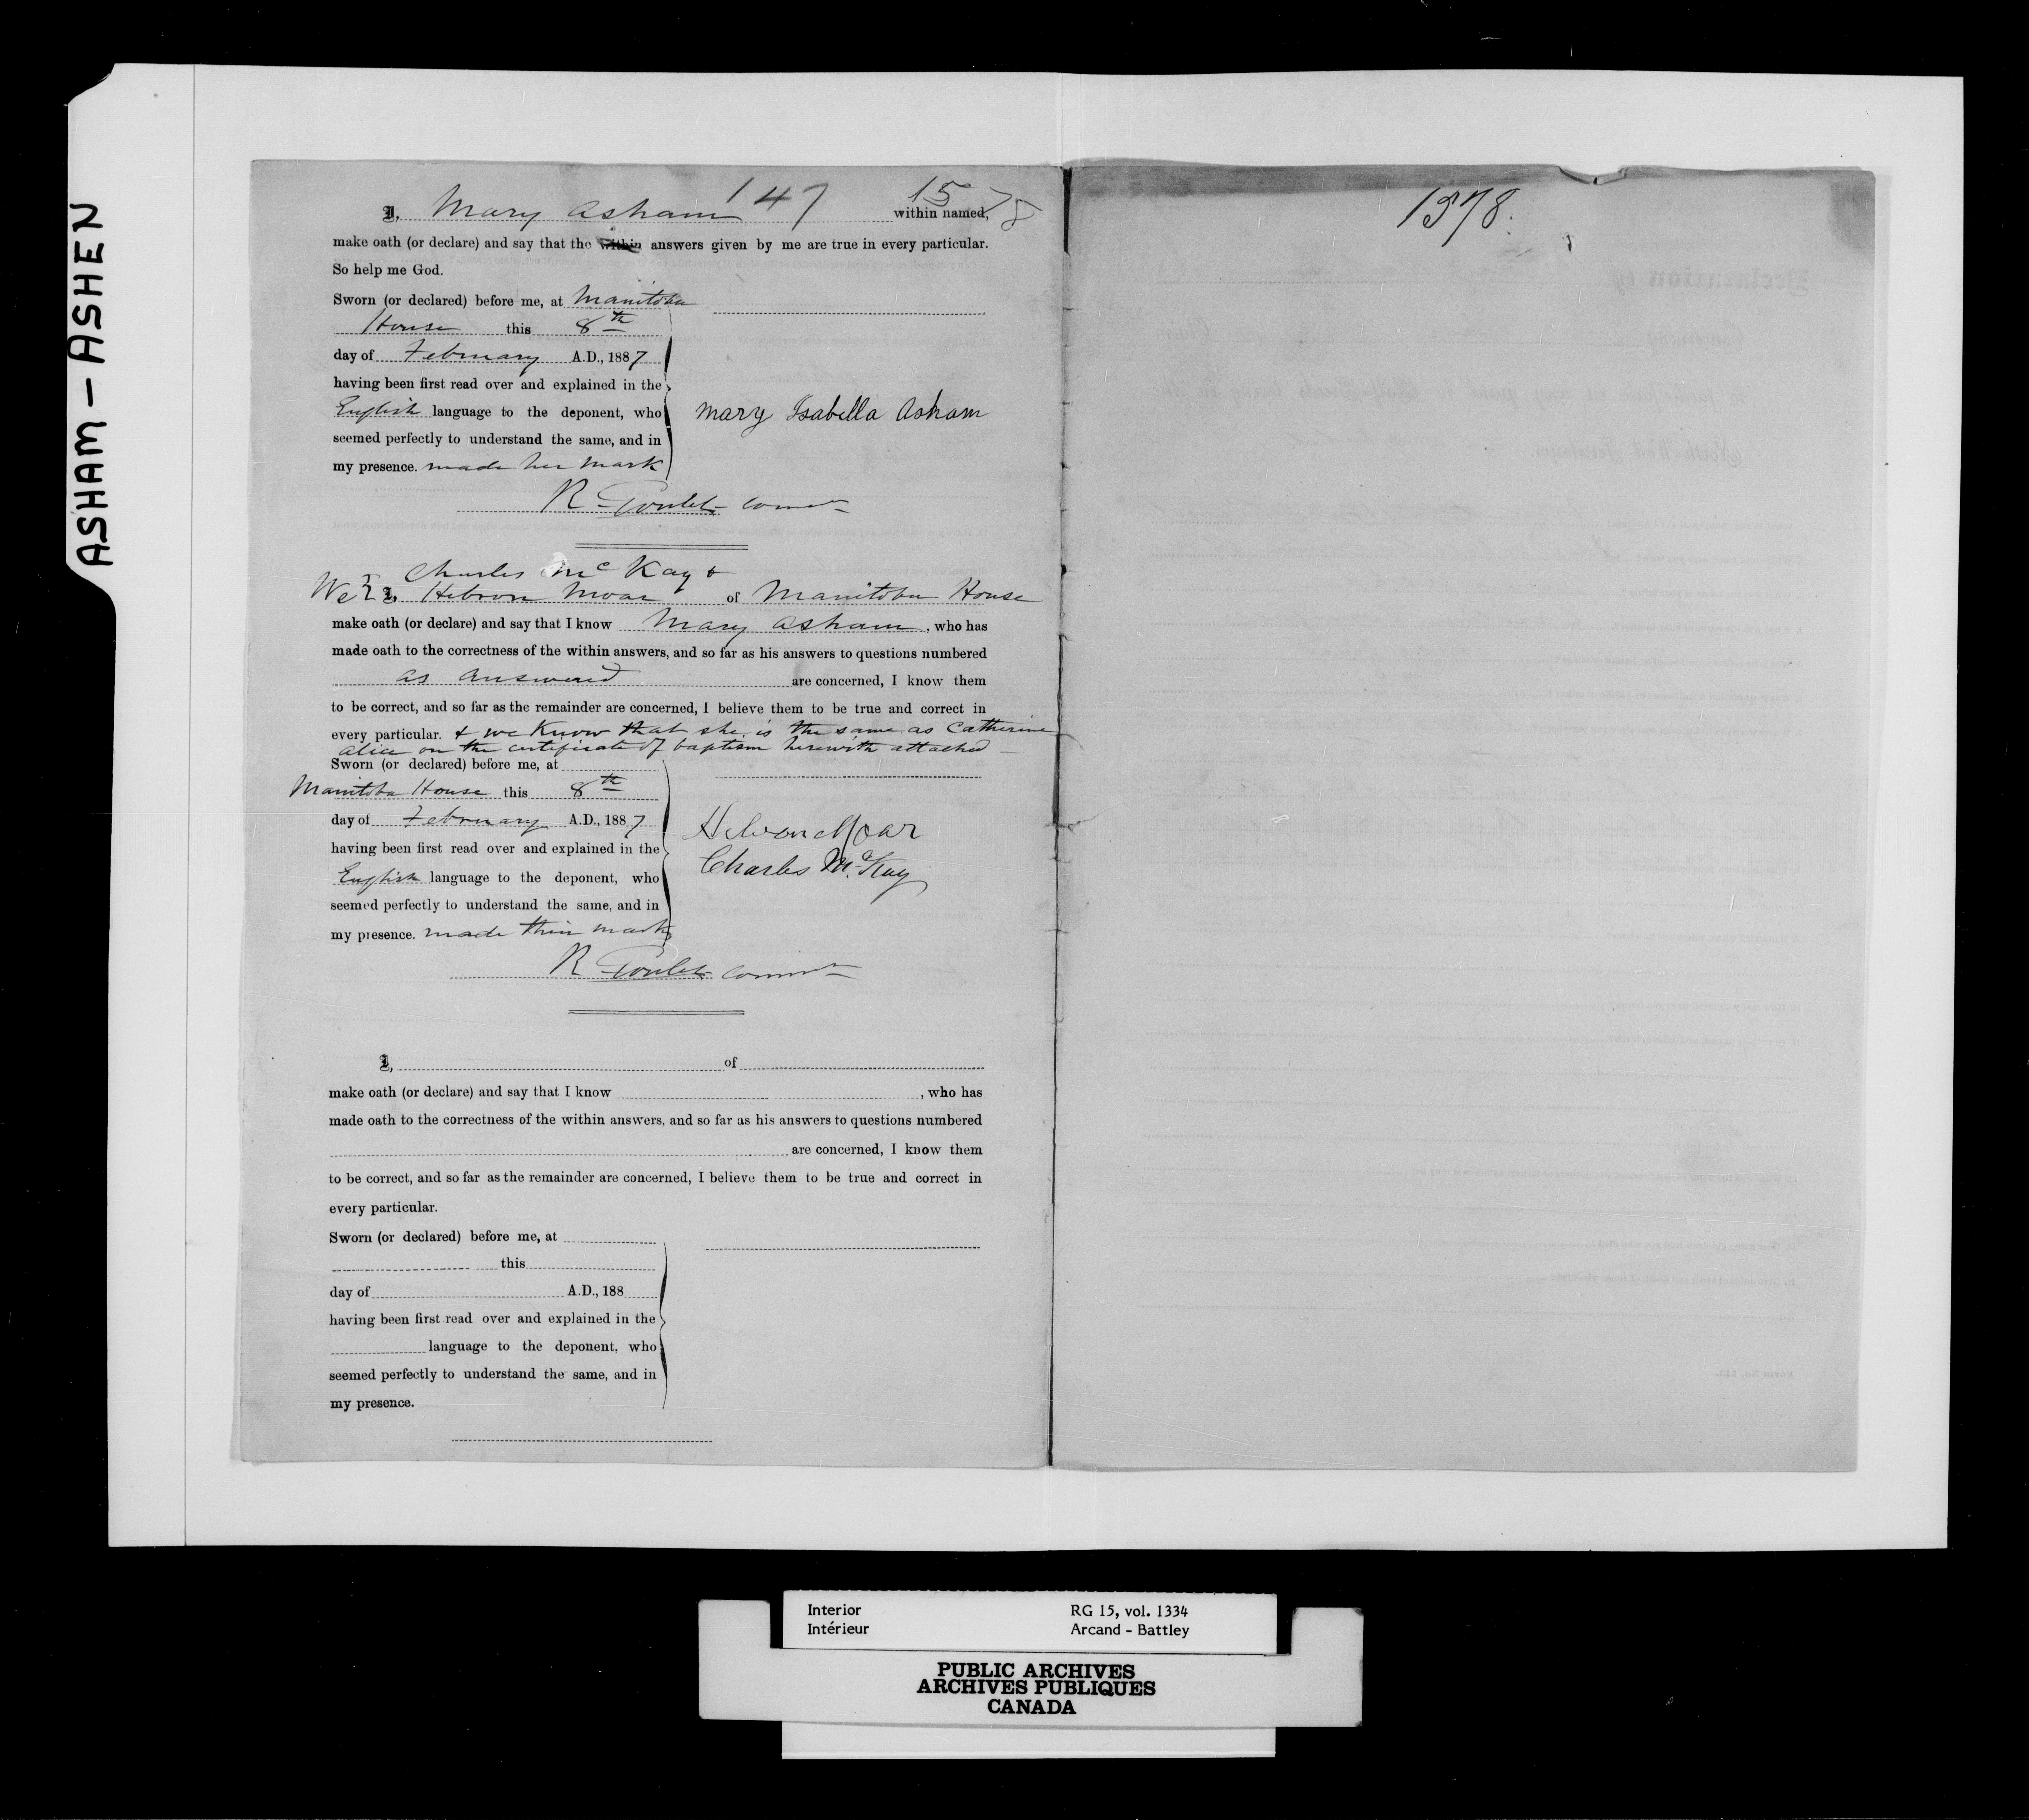 ASHAM - ASHEN
147 1578
I, Mary Asham within named,
make oath (or declare) and say that the within answers given by me are true in every particular.
So help me God.
Sworn (or declared) before me, at Manitoba
House this 8th
day of February A.D., 1887
having been first read over and explained in the
English language to the deponent, who
seemed perfectly to understand the same, and in
my presence. made her mark
Mary Isabella Asham
R Goulet
Charles McKay &
We I, Hebron Moar of Manitoba House
make oath (or declare) and say that I know Mary Asham, who has
made oath to the correctness of the within answers, and so far as his answers to questions numbered
as answered are concerned, I know them
to be correct, and so far as the remainder are concerned, I believe them to be true and correct in
every particular. & we know that she is the same as Catherine
Alice on the certificate of baptism herewith attached
Sworn (or declared) before me, at
Manitoba House this 8th
day of February A.D., 1887
having been first read over and explained in the
English language to the deponent, who
seemed perfectly to understand the same, and in
my presence. made their marks
Hebron Moar
Charles McKay
R Goulet
I, of
make oath (or declare) and say that I know , who has
made oath to the correctness of the within answers, and so far as his answers to questions numbered
are concerned, I know them
to be correct, and so far as the remainder are concerned, I believe them to be true and correct in
every particular.
Sworn (or declared) before me, at
this
day of A.D., 188
having been first read over and explained in the
language to the deponent, who
seemed perfectly to understand the same, and in
my presence.
1578.
Interior RG 15, vol. 1334
Intérieur Arcand - Battley
PUBLIC ARCHIVES
ARCHIVES PUBLIQUES
CANADA